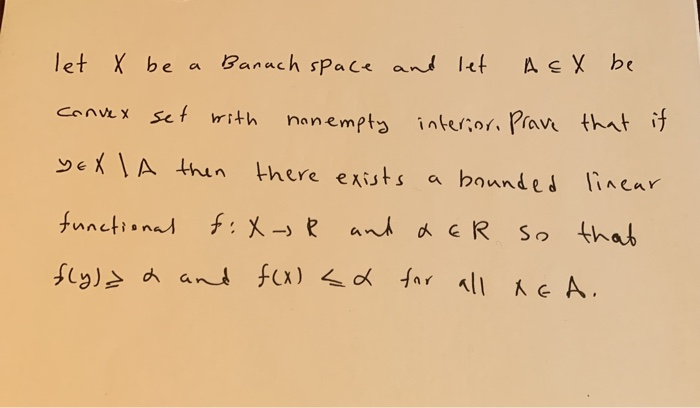 let X be a Banach space and let A ⊆ X be
convex set with nonempty interior. Prove that if
y ∈ X \ A then there exists a bounded linear
functional f: X → R and α ∈ R so that
f(y) ≥ α and f(x) ≤ α for all x ∈ A.